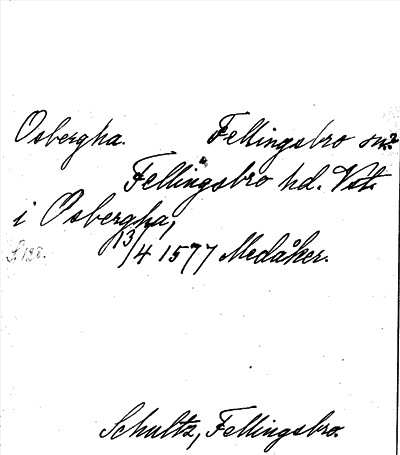 Osbergha. Fellingsbro sn?
Fellingsbro hd. Vstm.
i Osbergha,
13/4 1577 Medåker.
Schultz, Fellingsbro.